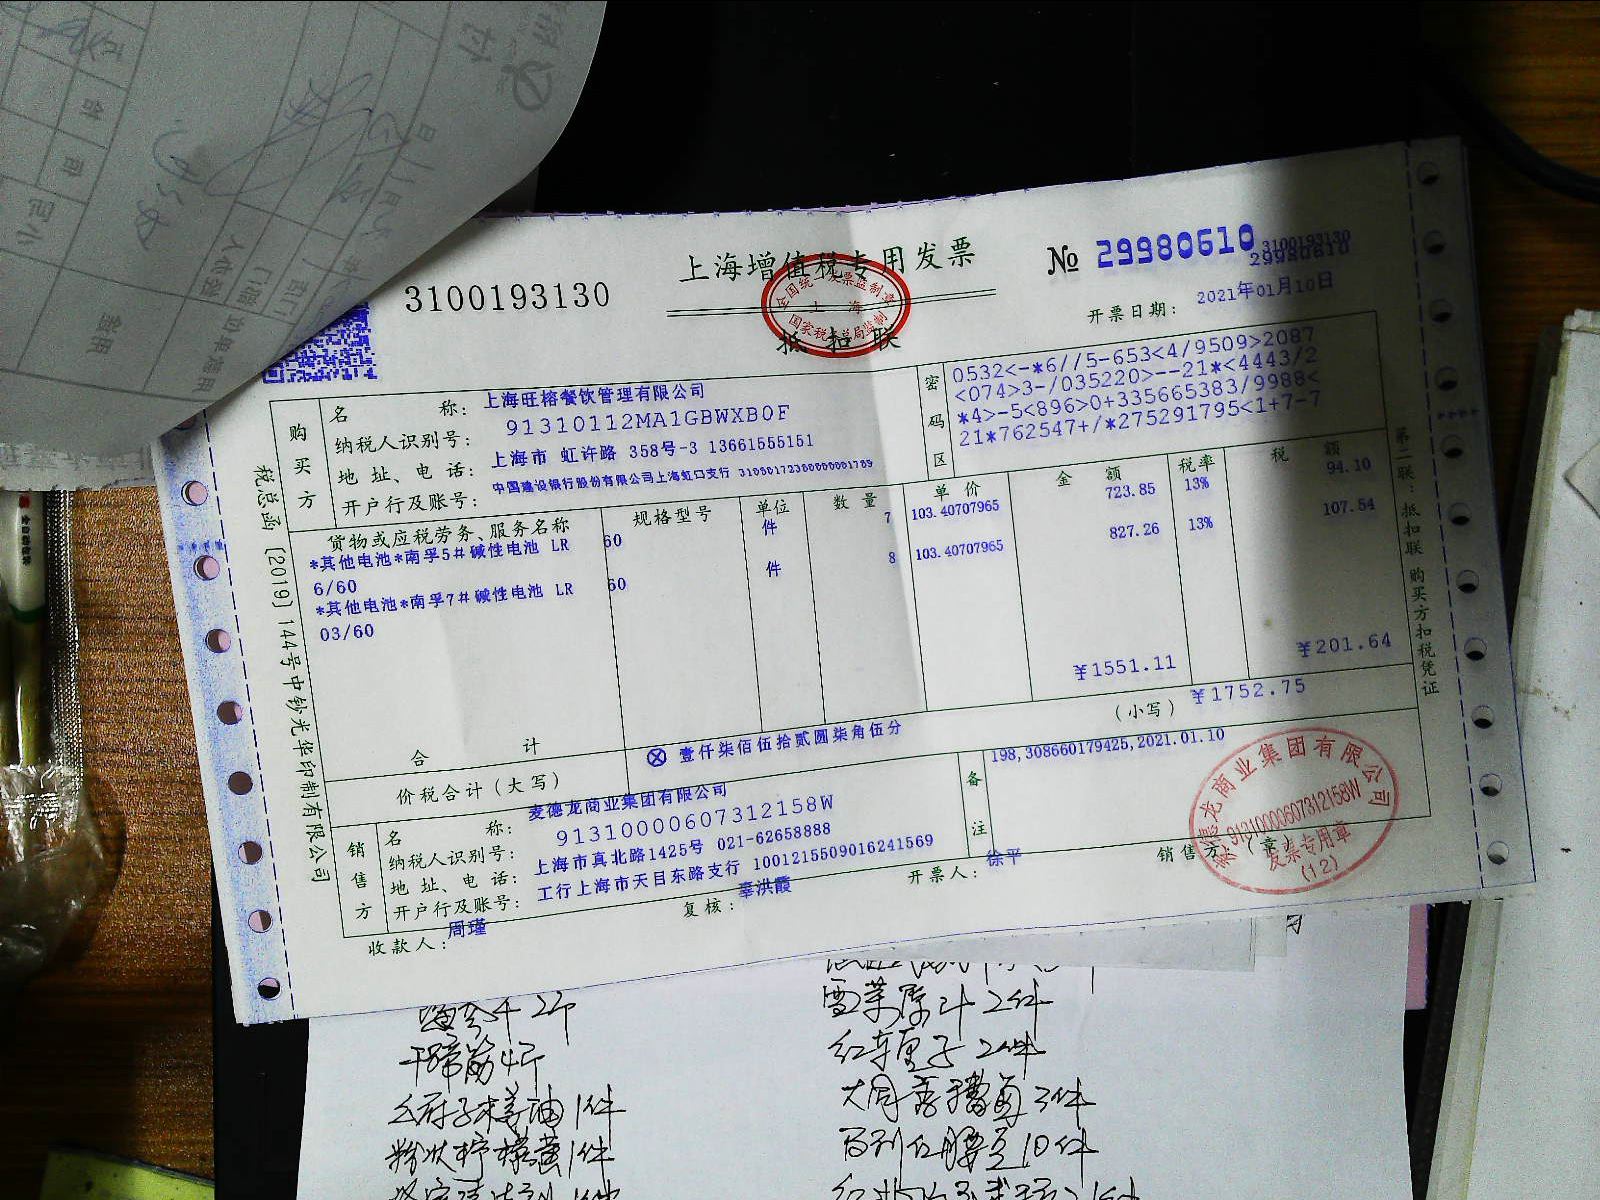 3100193130
上海增值税专用发票
抵扣联
全国统一发票监制章
上海
国家税务总局监制
№ 29980610
3100193130
29980610
开票日期: 2021年01月10日
购买方
名称: 上海旺榕餐饮管理有限公司
纳税人识别号: 91310112MA1GBWXB0F
地址、电话: 上海市 虹许路 358号-3 13661555151
开户行及账号: 中国建设银行股份有限公司上海虹口支行
密码区
0532<-*6//5-653<4/9509>2087
<074>3-/035220>--21*<4443/2
*4>-5<896>0+335665383/9988<
21*762547+/*275291795<1+7-7
货物或应税劳务、服务名称 规格型号 单位 数量 单价 金额 税率 税额
*其他电池*南孚5#碱性电池 LR 60 件 7 103.40707965 723.85 13% 94.10
6/60
*其他电池*南孚7#碱性电池 LR 60 件 8 103.40707965 827.26 13% 107.54
03/60
合计 ¥1551.11 ¥201.64
价税合计(大写) ⊗ 壹仟柒佰伍拾贰圆柒角伍分 (小写) ¥1752.75
销售方
名称: 麦德龙商业集团有限公司
纳税人识别号: 91310000607312158W
地址、电话: 上海市真北路1425号 021-62658888
开户行及账号: 工行上海市天目东路支行 1001215509016241569
备注
198,308660179425,2021.01.10
收款人: 周瑾
复核: 辜洪霞
开票人: 徐平
销售方:(章)
麦德龙商业集团有限公司
91310000607312158W
发票专用章
(12)
税总函 [2019] 144号中钞光华印制有限公司
第二联:抵扣联 购买方扣税凭证
干蹄筋4斤
1件
粉状柠檬黄1件
雪菜 2件
红车厘子2件
3件
10件